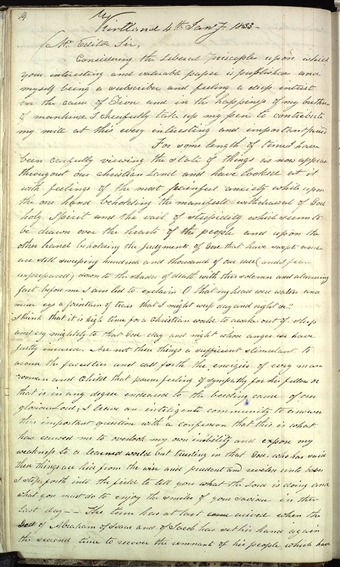 14
Kirtland 4th Jany. 1833
Mr. Editor Sir,
Considering the Liberal Principles upon which
your interesting and valuable paper is published and
myself being a subscriber and feeling a deep interest
in the cause of Zion and in the happiness of my brethren
of mankind I cheerfully take up my pen to contribute
my mite at this every interesting and important period
For some length of time I have
been carefully viewing the state of things as now appear
throughout our christian Land and have looked at it
with feelings of the most painful anxiety while upon
the one hand beholding the manifest withdrawal of God's
holy Spirit and the vail of stupidity which seems to
be drawn over the hearts of the people and upon the
other hand beholding the judgments of God that have swept and
are still sweeping hundreds and thousands of our race (and I fear
unprepared) down to the shades of death with this solemn and alarming
fact before me I am led to exclaim O that my head were waters and
mine eyes a fountain of tears that I might weep day and night &c.
I think that it is high time for a christian world to awake out of sleep
and cry mightily to that God day and night whose anger we have
justly incured. Are not these things a sufficient stimulant to
arouse the faculties and call forth the energies of every man
woman and child that possess feeling of sympathy for his fellow or
that is in any degree endeared to the buding cause of our
glorious Lord; I leave an inteligent community to answer
this important question with a confession that this is what
has caused me to overlook my own inability and expose my
weakness to a learned world but trusting in that God who has said
these things are hid from the wise and prudent and revealed unto babes
I step forth into the field to tell you what the Lord is doing and
what you must do to enjoy the smiles of your saviour in these
last days The time has at last come arived when the
God of Abraham of Isaac and of Jacob has set his hand again
the second time to recover the remnant of his people which have